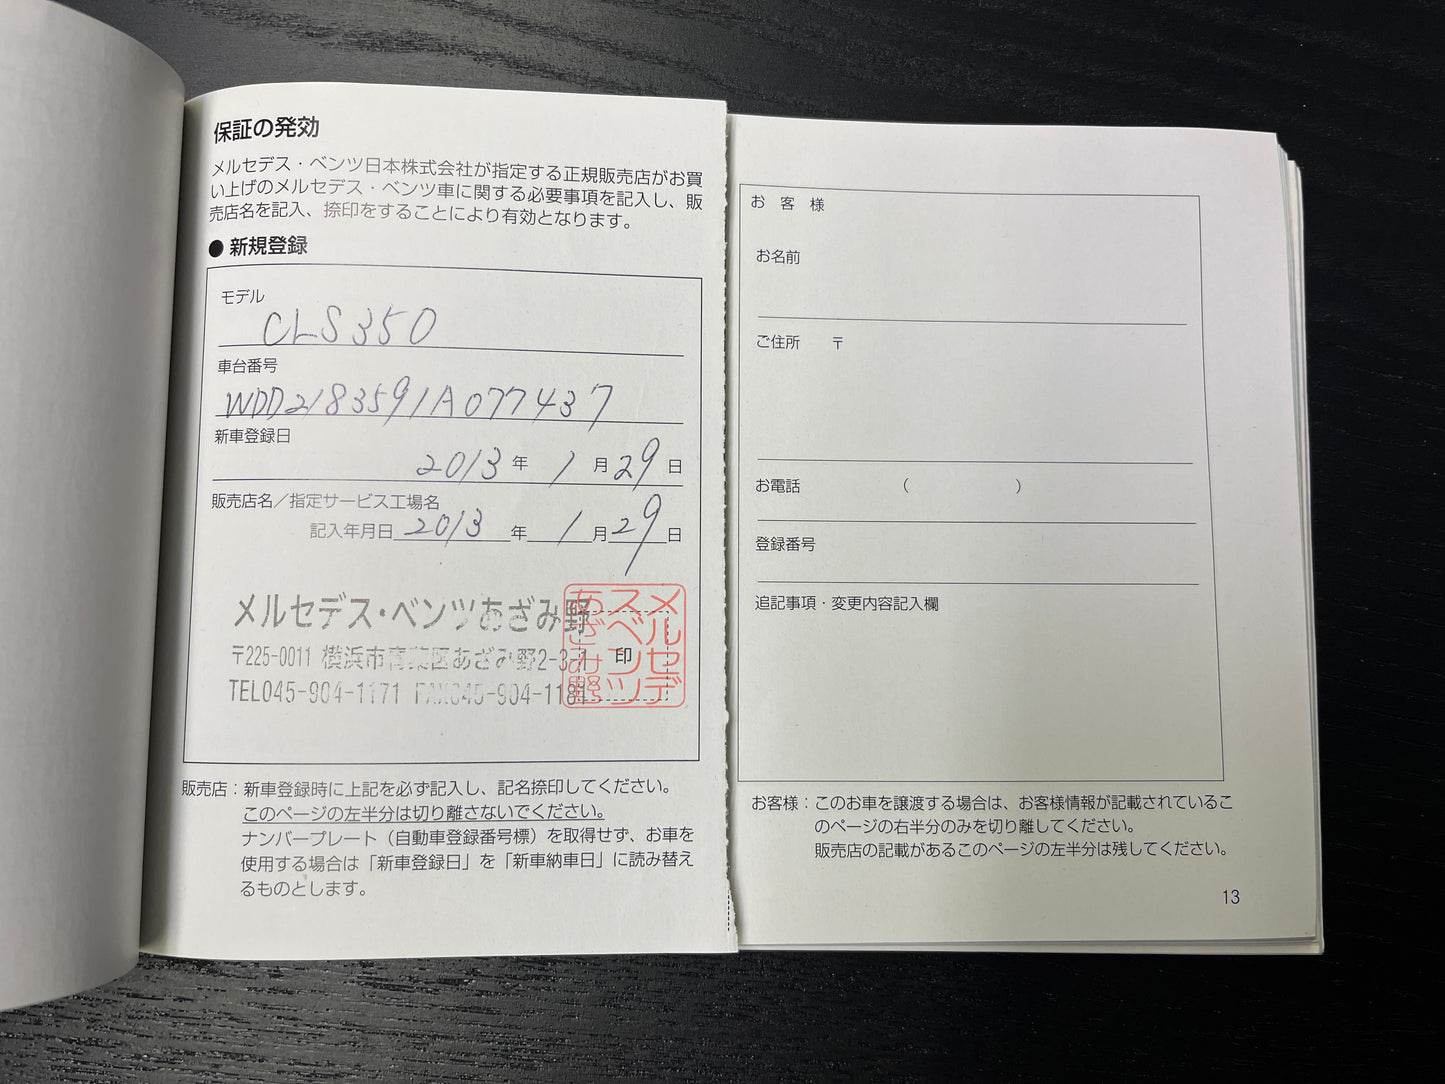 保証の発効
メルセデス・ベンツ日本株式会社が指定する正規販売店がお買
い上げのメルセデス・ベンツ車に関する必要事項を記入し、販
売店名を記入、捺印をすることにより有効となります。
● 新規登録
モデル
CLS350
車台番号
WDD2183591A077437
新車登録日
2013 年 1 月 29 日
販売店名／指定サービス工場名
記入年月日 2013 年 1 月 29 日
メルセデス・ベンツあざみ野
〒225-0011 横浜市青葉区あざみ野2-3-1
TEL045-904-1171 FAX045-904-1181
メルセデ
スベンツ
あざみ野
印
販売店：新車登録時に上記を必ず記入し、記名捺印してください。
このページの左半分は切り離さないでください。
ナンバープレート（自動車登録番号標）を取得せず、お車を
使用する場合は「新車登録日」を「新車納車日」に読み替え
るものとします。
お 客 様
お名前
ご住所 〒
お電話 （ ）
登録番号
追記事項・変更内容記入欄
お客様：このお車を譲渡する場合は、お客様情報が記載されているこ
のページの右半分のみを切り離してください。
販売店の記載があるこのページの左半分は残してください。
13